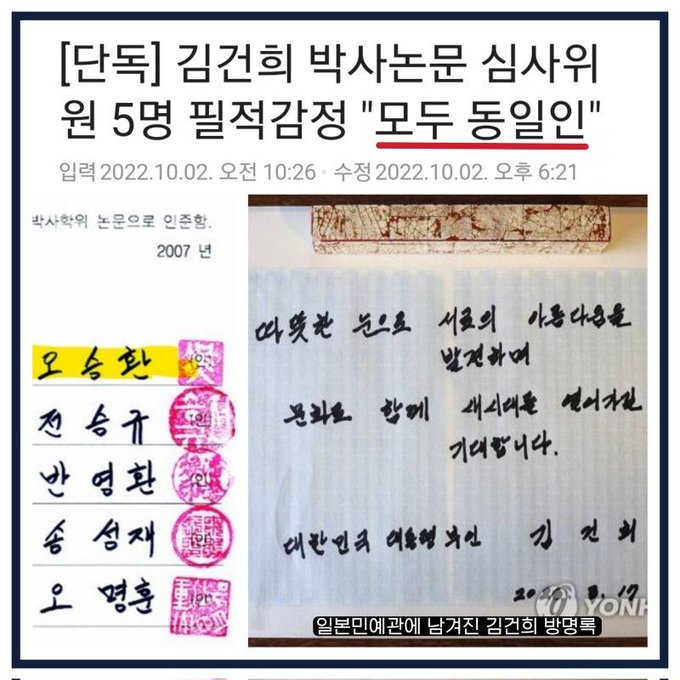 [단독] 김건희 박사논문 심사위
원 5명 필적감정 "모두 동일인"
입력 2022.10.02. 오전 10:26 · 수정 2022.10.02. 오후 6:21
박사학위 논문으로 인준함.
2007 년
오 승 환 (인)
전 승 규 (인)
반 영 환 (인)
송 성 재 (인)
오 명 훈 (인)
따뜻한 눈으로 서로의 아름다움을
발견하며
문화로 함께 새시대를 열어가길
기대합니다.
대한민국 대통령부인 김 건 희
3. 17
YONH
일본민예관에 남겨진 김건희 방명록